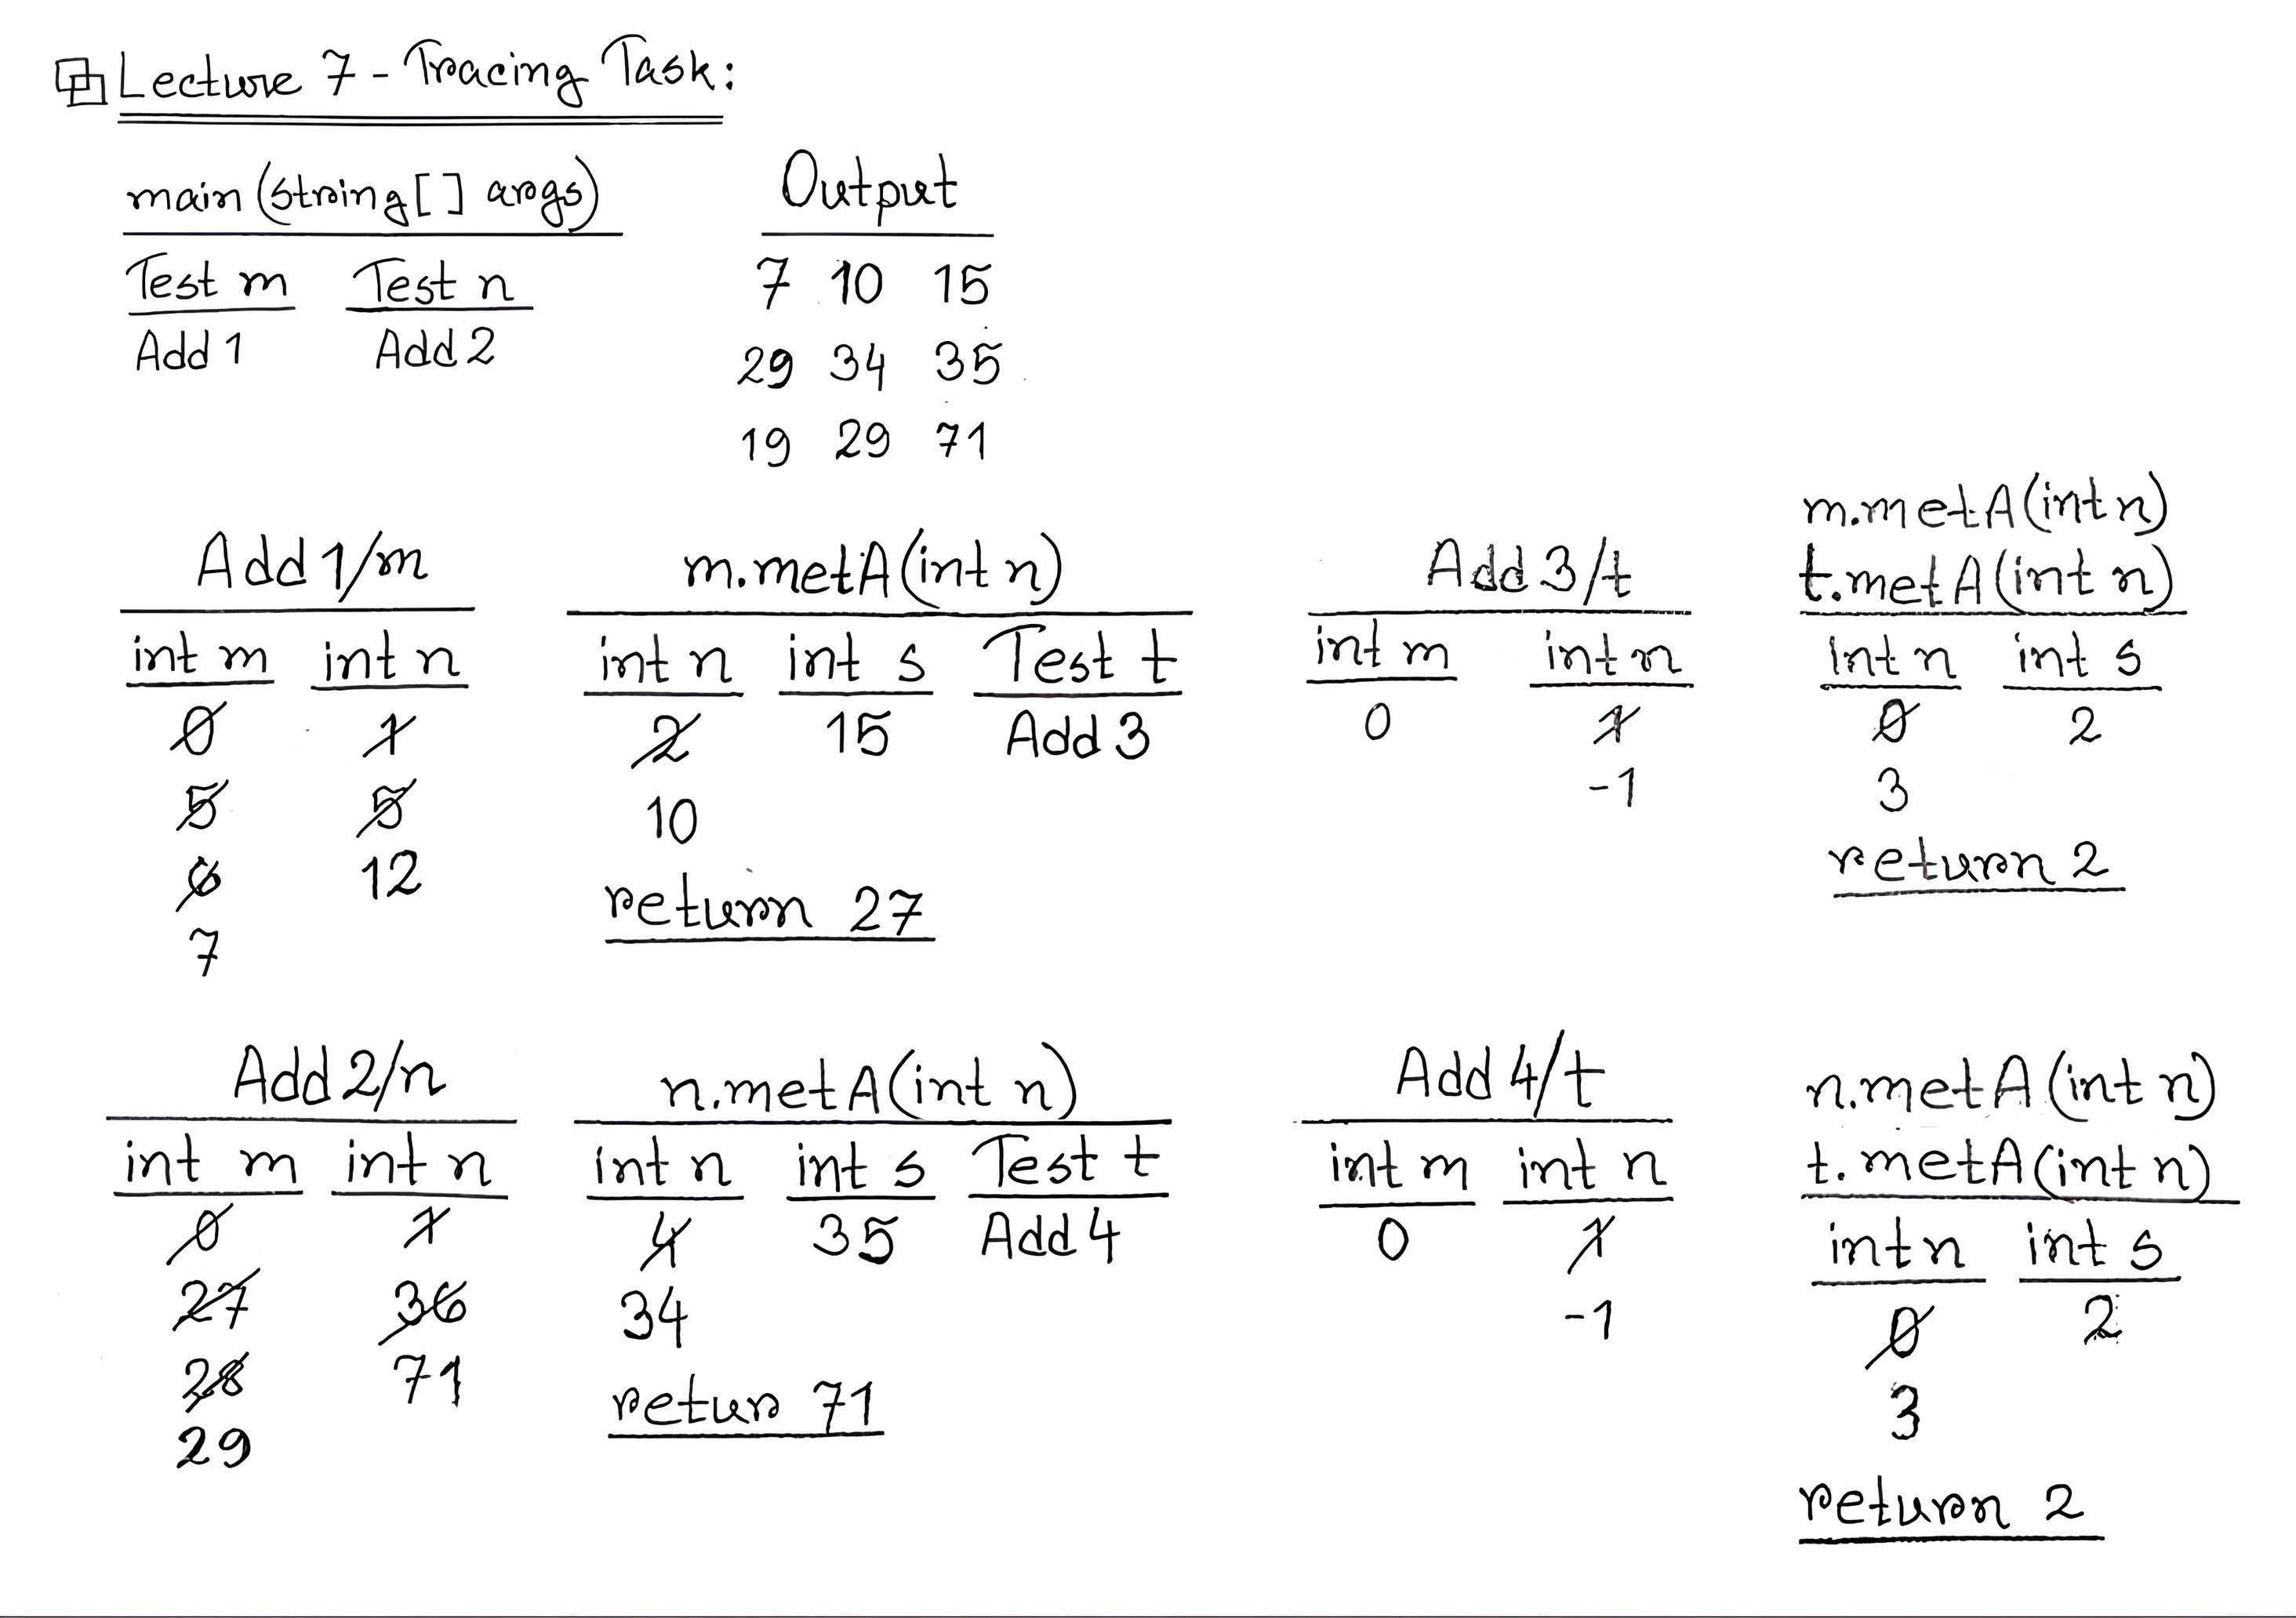 Lecture 7 - Tracing Task:
main (String[] args)
Test m Test n
Add 1 Add 2
Output
7 10 15
29 34 35
19 29 71
Add 1/m
int m int n
0 1
5 5
6 12
7
m.metA(int n)
int n int s Test t
2 15 Add 3
10
return 27
Add 3/t
int m int n
0 1
-1
m.metA(int n)
t.metA(int n)
int n int s
0 2
3
return 2
Add 2/n
int m int n
0 1
27 36
28 71
29
n.metA(int n)
int n int s Test t
4 35 Add 4
34
retur 71
Add 4/t
int m int n
0 1
-1
n.metA(int n)
t.metA(int n)
int n int s
0 2
3
return 2